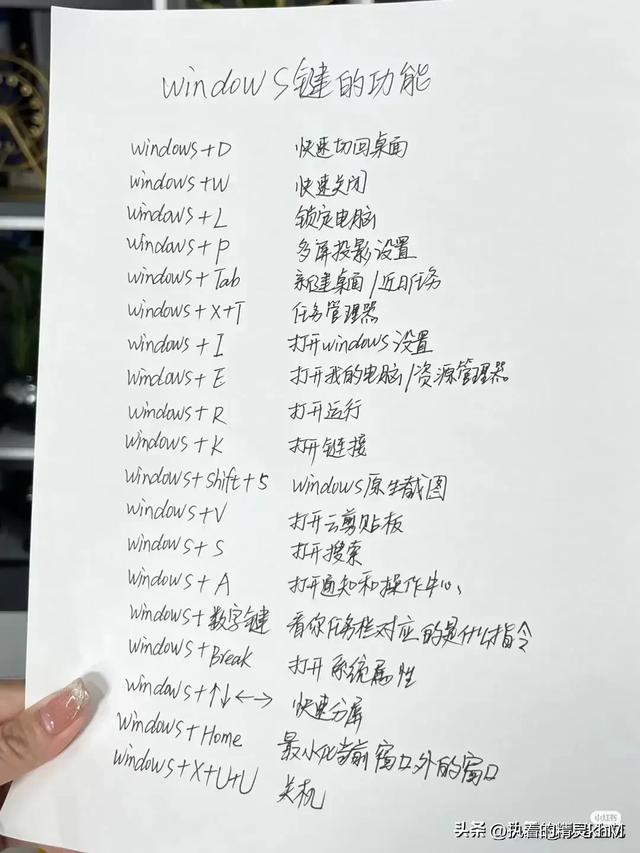 windows键的功能
windows+D 快速切回桌面
windows+W 快速关闭
windows+L 锁定电脑
windows+P 多屏投影设置
windows+Tab 新建桌面/近日任务
windows+X+T 任务管理器
windows+I 打开windows设置
windows+E 打开我的电脑/资源管理器
windows+R 打开运行
windows+K 打开链接
windows+shift+S windows原生截图
windows+V 打开云剪贴板
windows+S 打开搜索
windows+A 打开通知和操作中心
windows+数字键 看你任务栏对应的是什么指令
windows+Break 打开系统属性
windows+↑↓←→ 快速分屏
windows+Home 最小化当前窗口外的窗口
windows+X+U+U 关机
小红书
头条 @执着的精灵